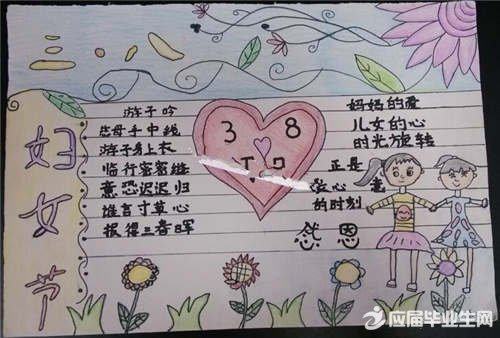 三八
妇女节
游子吟
慈母手中线
游子身上衣
临行密密缝
意恐迟迟归
谁言寸草心
报得三春晖
3 8
妈妈的爱
儿女的心
时光旋转
正是
的时刻
感恩
应届毕业生网